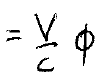 = v/c ϕ